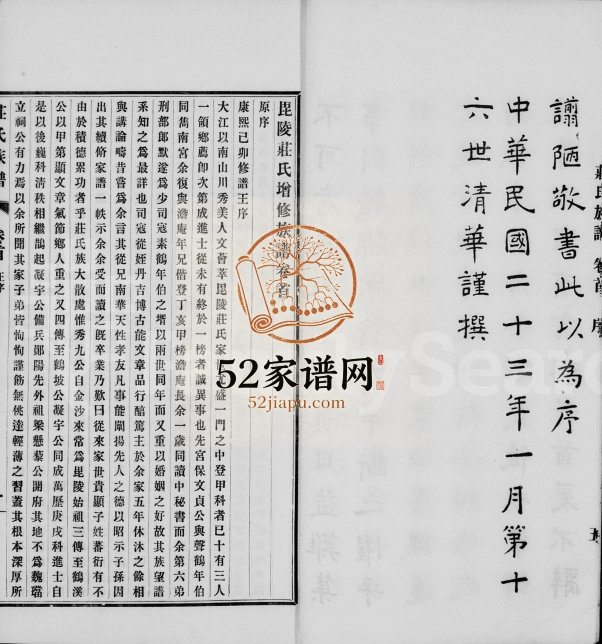 譾陋敬書此以為序
中華民國二十三年一月第十
六世清華謹撰
莊氏族譜
序
毘陵莊氏增修族譜卷首
原序
康熙己卯修譜王序
大江以南山川秀美人文薈萃毘陵莊氏家
盛一門之中登甲科者已十有三人
一領鄉薦卽次第成進士從未有終於一榜者誠異事也先宮保文貞公與聲鶴年伯
同雋南宮余復與澹庵年兄偕登丁亥甲榜澹庵長余一歲同讀中秘書而余第六弟
刑部郎默邃爲少司寇素鶴年伯之壻以兩世同年而又重以婚姻之好故其族望譜
系知之爲最詳也司寇從姪丹吉博古能文章品行醕篤主於余家五年休沐之餘相
與講論疇昔嘗爲余言其從兄南華天性孝友凡事能闡揚先人之德以昭示子孫因
出其續脩家譜一帙示余余受而讀之旣卒業乃歎曰從來家世貴顯子姓蕃衍有不
由於積德累功者乎莊氏族大散處惟秀九公自金沙來常爲毘陵始祖三傳至鶴溪
公以甲第顯文章氣節鄉人重之又四傳至鶴坡公凝宇公同成萬歷庚戌科進士自
是以後巍科清秩相繼鵲起凝宇公備兵鄖陽先外祖梁懸藜公開府其地不爲魏璫
立祠公有力焉以余所聞其家子弟皆恂恂謹飭無佻達輕薄之習蓋其根本深厚所
莊氏族譜
卷首
王序
一
52家谱网
52jiapu.com